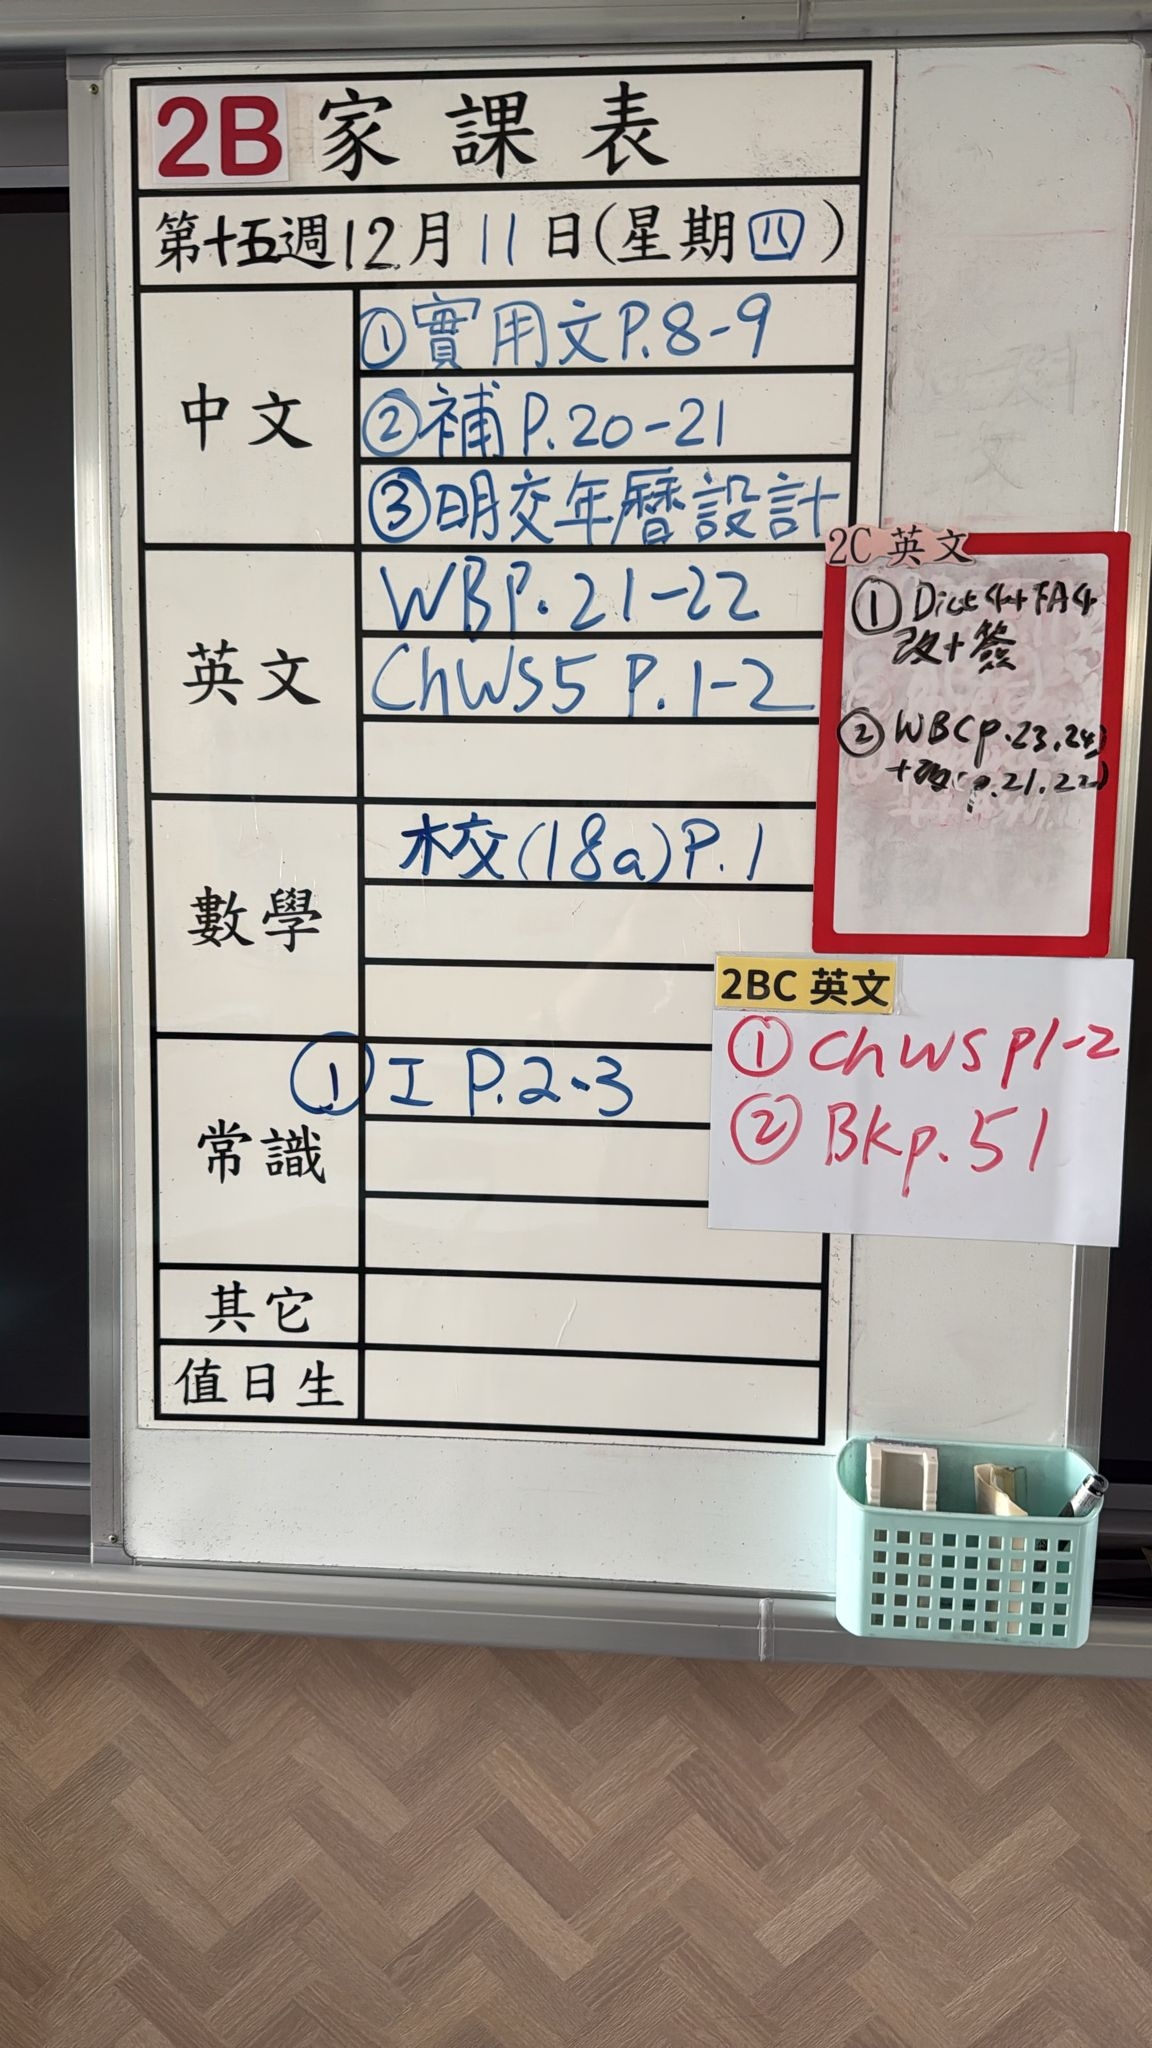 2B 家課表
第十五週12月11日(星期四)
中文
①實用文P.8-9
②補P.20-21
③明交年曆設計
英文
WBP.21-22
ChWS5 P.1-2
數學
校(18a)P.1
常識
①I P.2-3
其它
值日生
2C 英文
①Dict4+FA4
改+簽
②WB(p.23,24)
+改(p.21,22)
2BC 英文
①ChWS p1-2
②Bkp.51